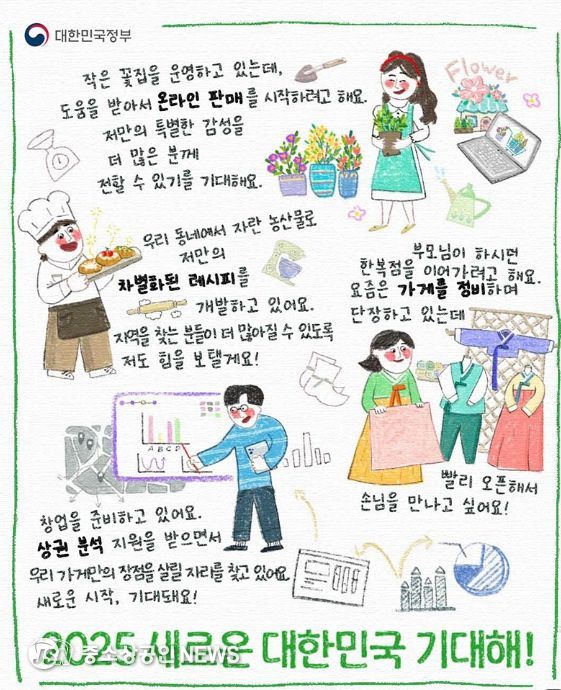 대한민국정부
작은 꽃집을 운영하고 있는데,
도움을 받아서 온라인 판매를 시작하려고 해요.
저만의 특별한 감성을
더 많은 분께
전할 수 있기를 기대해요.
Flower
우리 동네에서 자란 농산물로
저만의
차별화된 레시피를
개발하고 있어요.
지역을 찾는 분들이 더 많아질 수 있도록
저도 힘을 보탤게요!
부모님이 하시던
한복점을 이어가려고 해요.
요즘은 가게를 정비하며
단장하고 있는데
빨리 오픈해서
손님을 만나고 싶어요!
A B C D
창업을 준비하고 있어요.
상권 분석 지원을 받으면서
우리 가게만의 장점을 살릴 자리를 찾고 있어요
새로운 시작, 기대돼요!
2025 새로운 대한민국 기대해!
중소상공인 NEWS